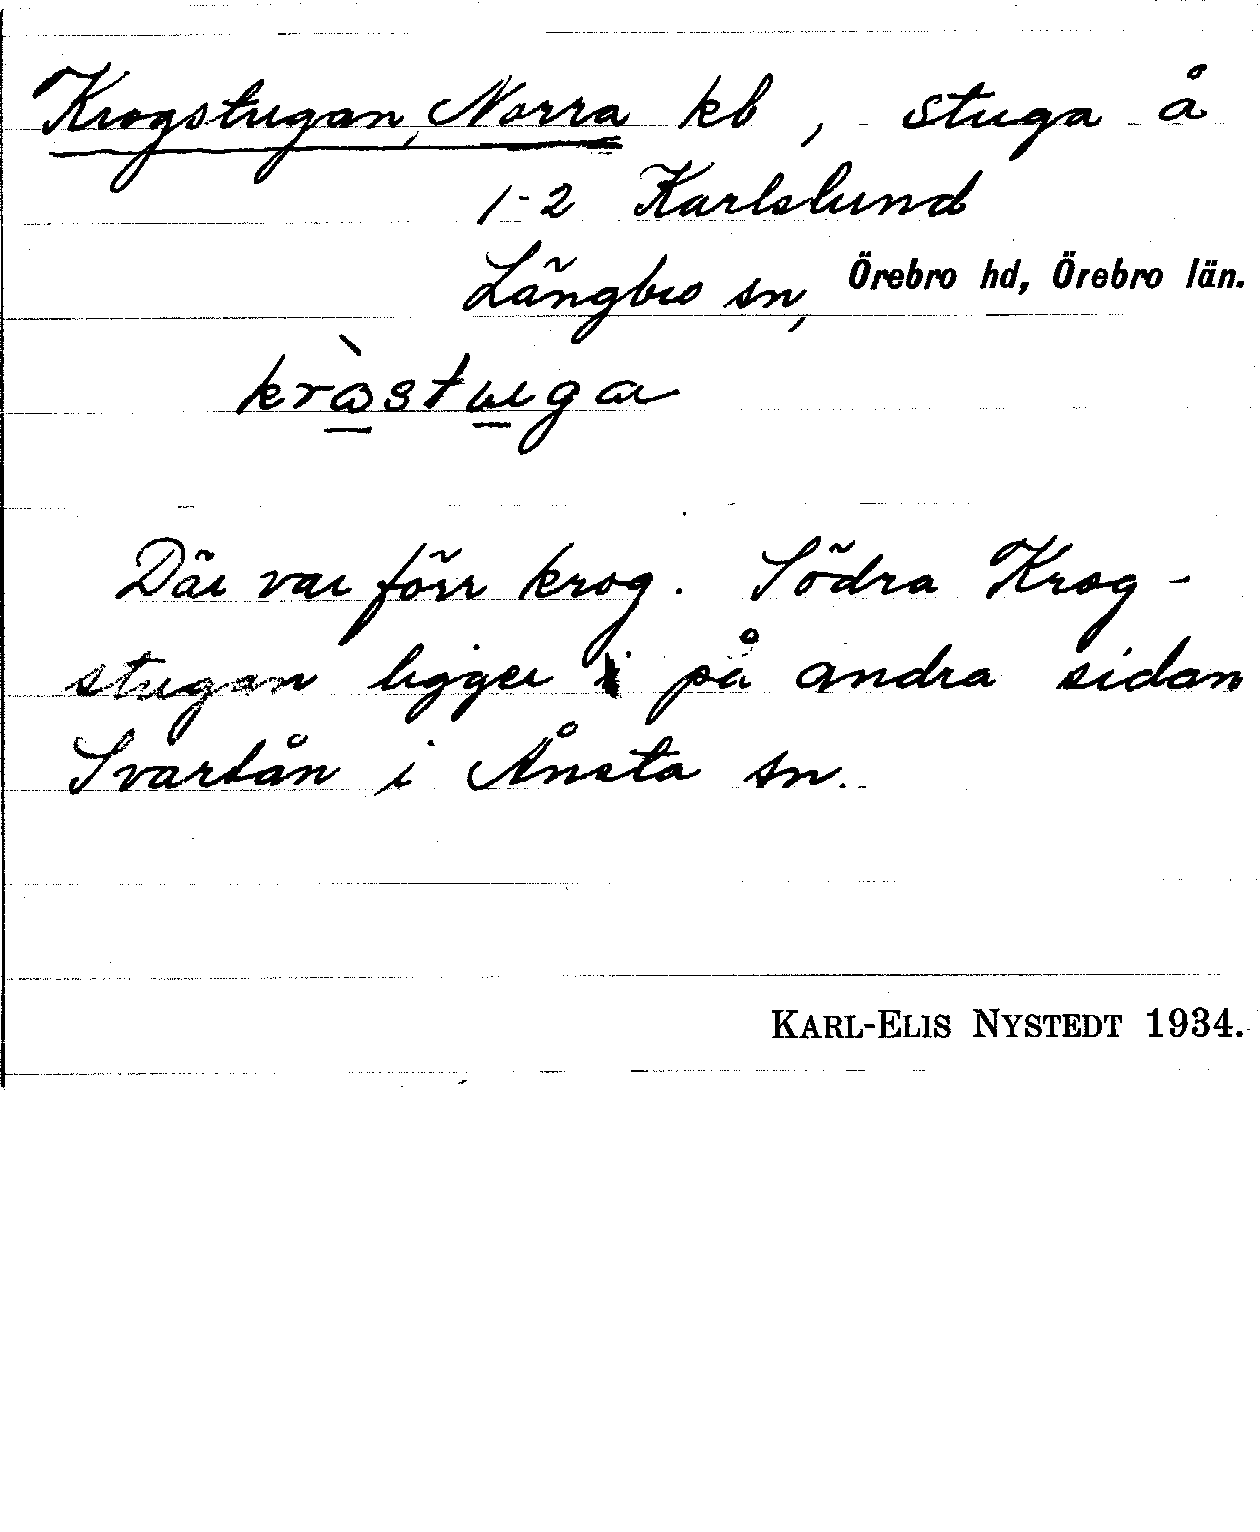 Krogstugan, Norra kb, stuga å
1-2 Karlslund
Längbro sn, Örebro hd, Örebro län.
kròstuga
Där var förr krog. Södra Krog-
stugan ligger på andra sidan
Svartån i Ånsta sn.
KARL-ELIS NYSTEDT 1934.